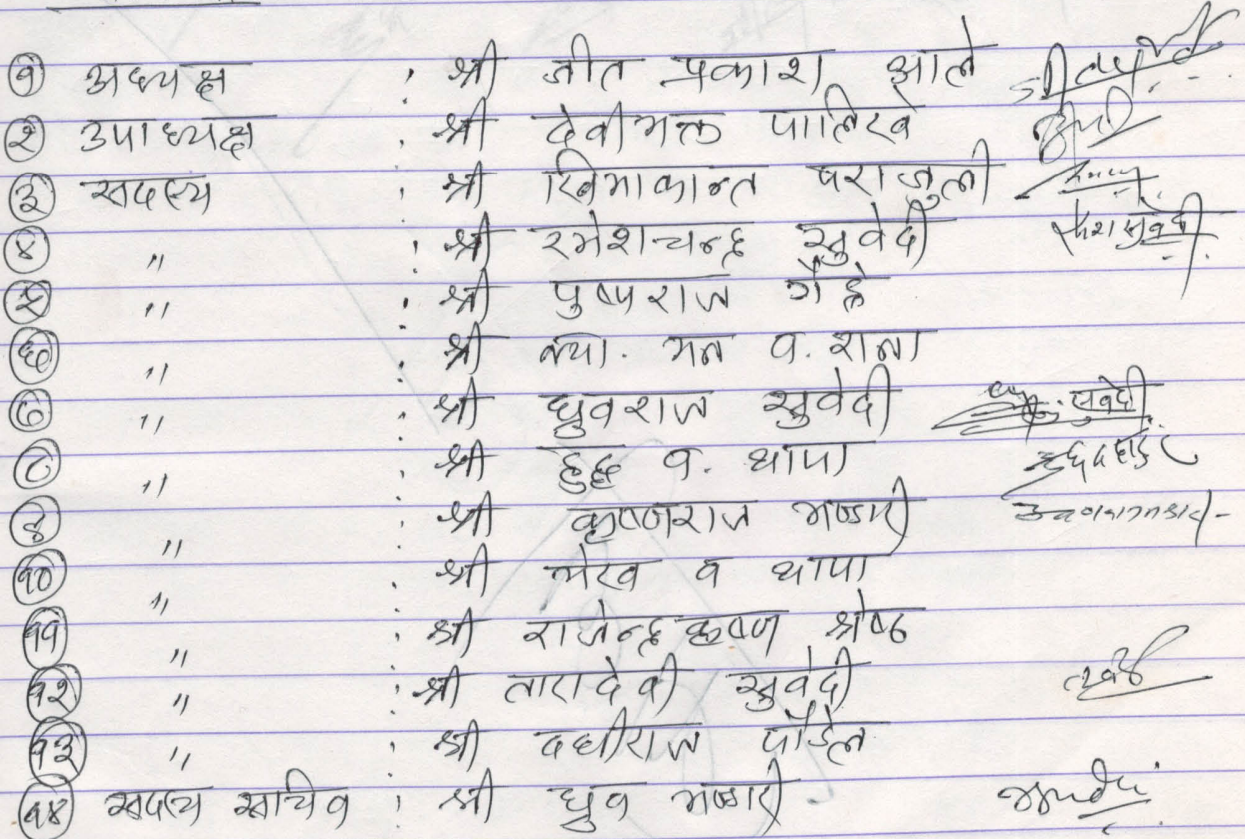 १ अध्यक्ष : श्री जीत प्रकाश आले
२ उपाध्यक्ष : श्री देवीभक्त पालिखे
३ सदस्य : श्री खिमाकान्त पराजुली
४ " : श्री रमेशचन्द्र सुवेदी
५ " : श्री पुष्पराज गैह्रे
६ " : श्री क्या. मन व. राना
७ " : श्री ध्रुवराज सुवेदी सुवेदी
८ " : श्री व. थापा
९ " : श्री कृष्णराज भण्डारी
१० " : श्री भैरव व थापा
११ " : श्री राजेन्द्रकृष्ण श्रेष्ठ
१२ " : श्री तारादेवी सुवेदी
१३ " : श्री दधीराज पौडेल
१४ सदस्य सचिव : श्री ध्रुव भण्डारी